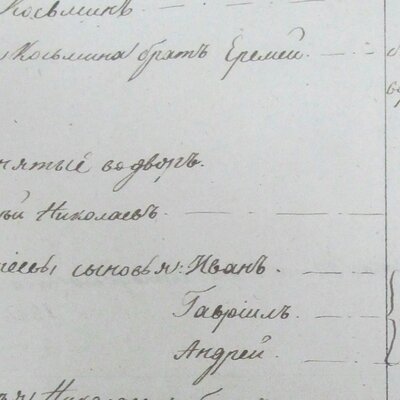 Косьминъ.
Косьмина братъ Еремей.
нятые во дворъ.
Николаевъ.
сыновья: Иванъ.
Гавріилъ.
Андрей.